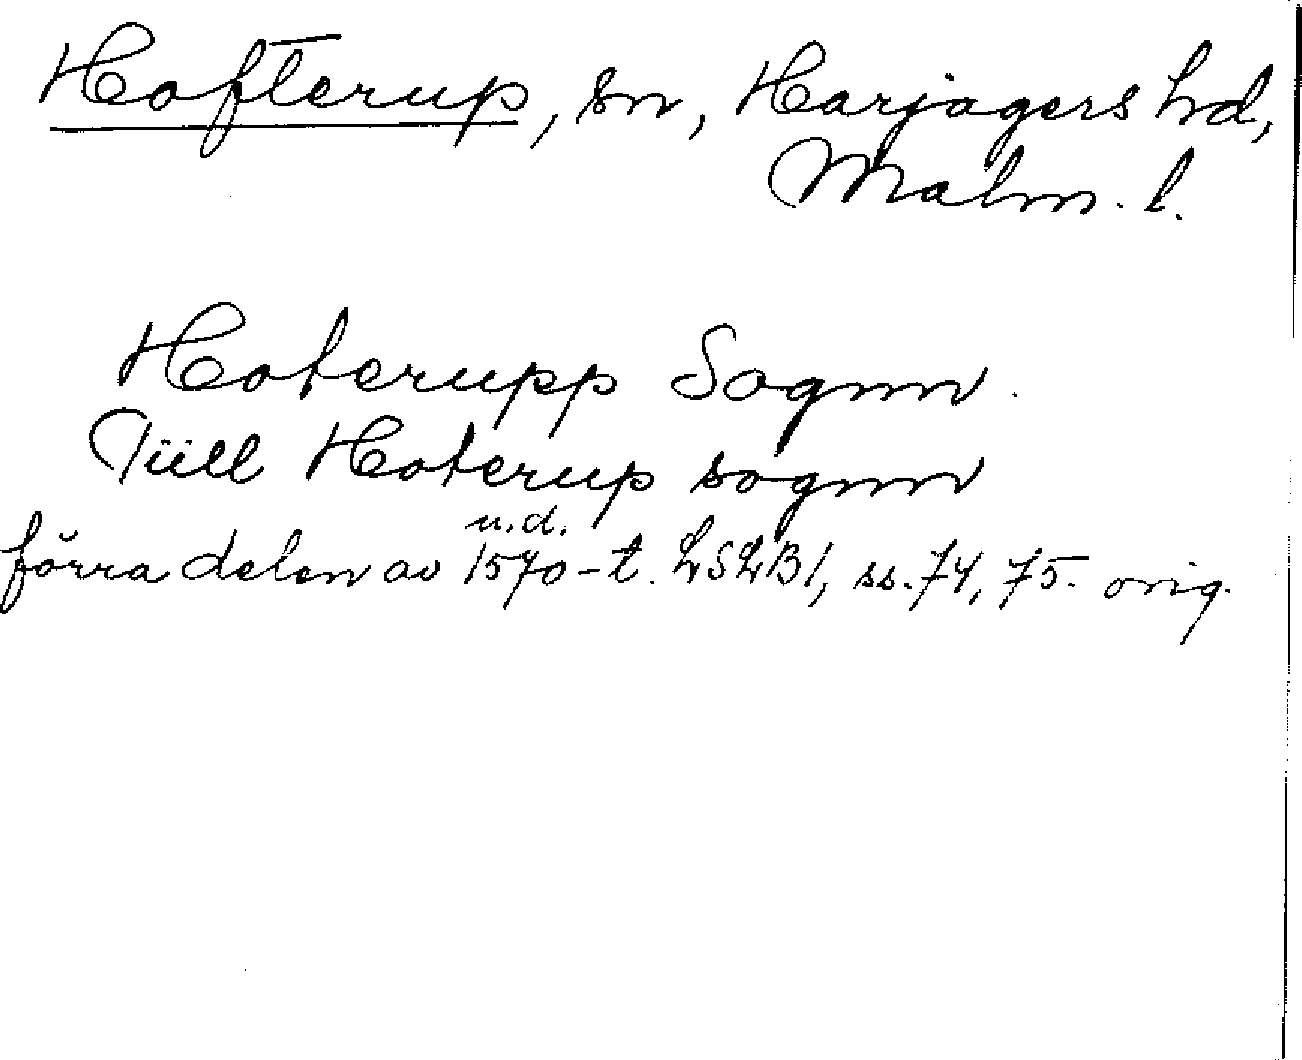 Hofterup, sn, Harjagers hd,
Malm. l.
Hoterupp Sognn.
Tüell Hoterup sognn
u.d.
förra delen av 1570-t. LSLB1, ss. 74, 75. orig.